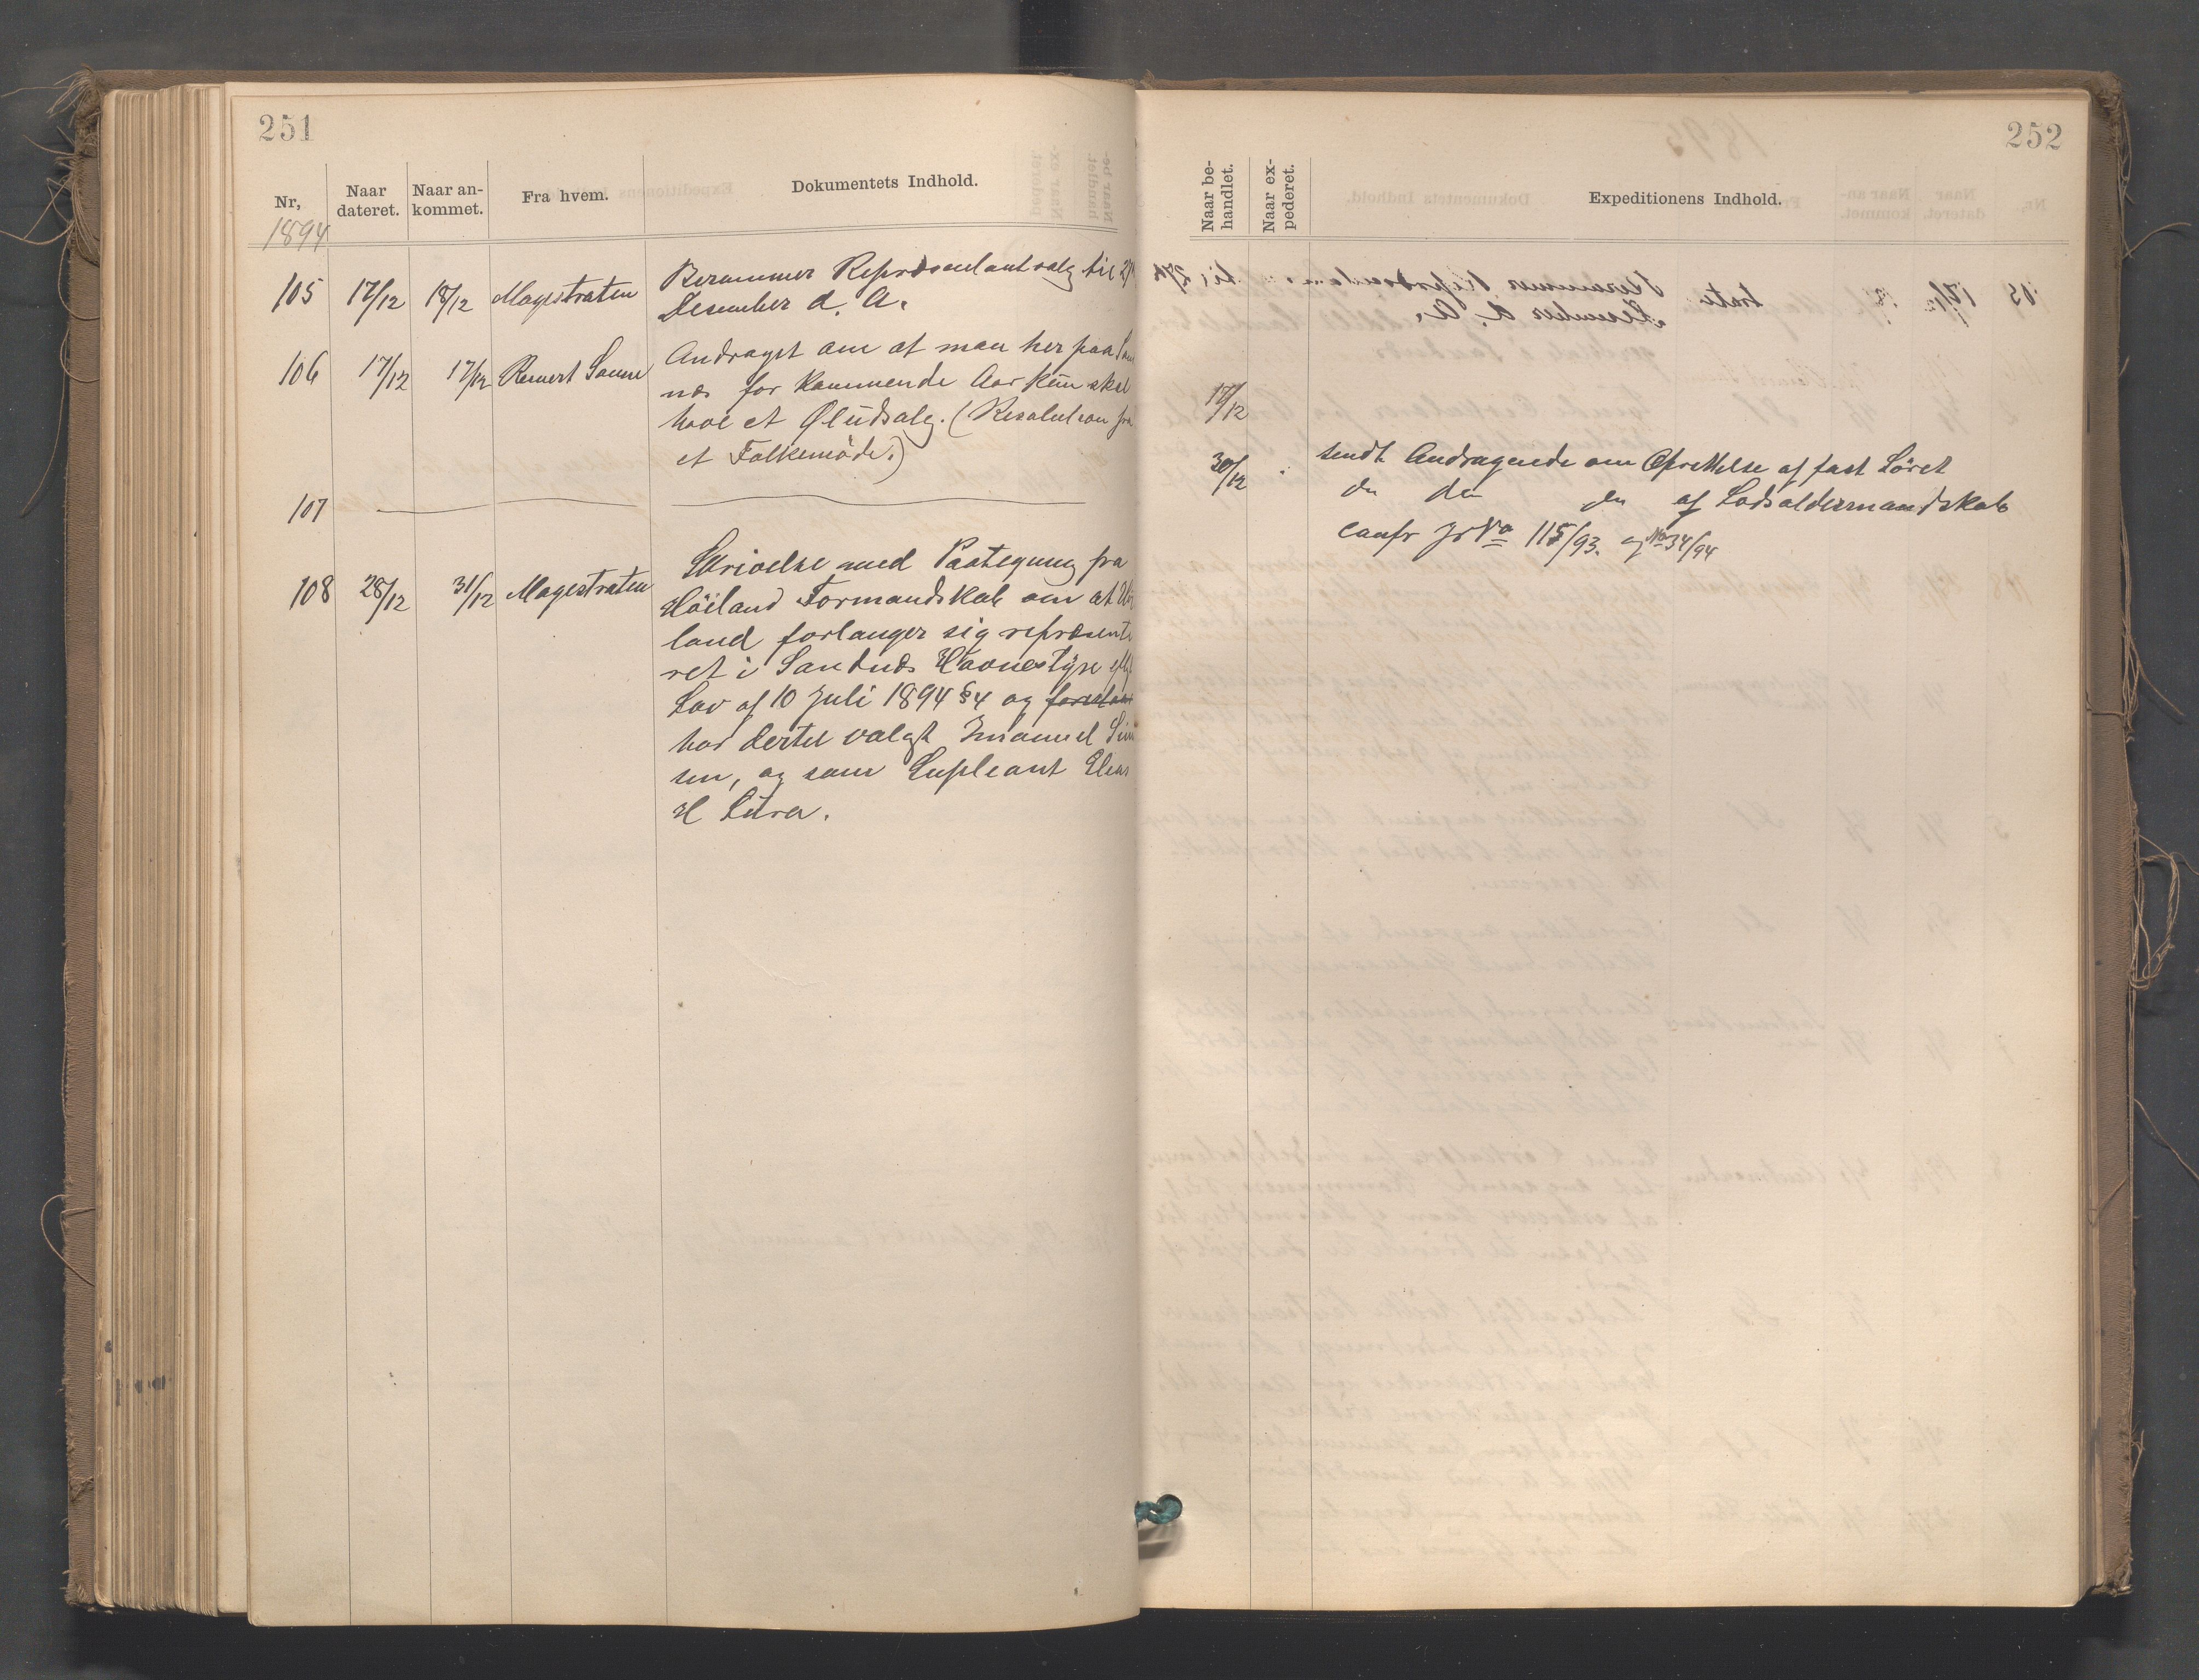 251
Nr,
Naar dateret.
Naar an-
kommet.
Fra hvem.
Dokumentets Indhold.
1894
105 17/12 18/12 Magistraten Berammer Repræsentantvalg til
Desember d. A.
106 17/12 17/12 Andraget om at man her paa
næs for kommende Aar kun skal
have et Øludsalg. (Resolution fra
et Folkemöde.)
107
108 28/12 31/12 Magestraten Skrivelse med Paategning fra
Höiland Formandskab om at
land forlanger sig repræsente
ret i Sandnæs Havnestyre
Lov af 10 Juli 1894 §4 og
har dertil valgt Imanuel
sen, og som Supleant Elias
H Lura.
252
Naar be-
handlet.
Naar ex-
pederet.
Expeditionens Indhold.
17/12
30/12 sendt Andragende om Oprettelse af fast
do do do af Lodsoldermandskab
confr Jr No 115/93. og No 34/94